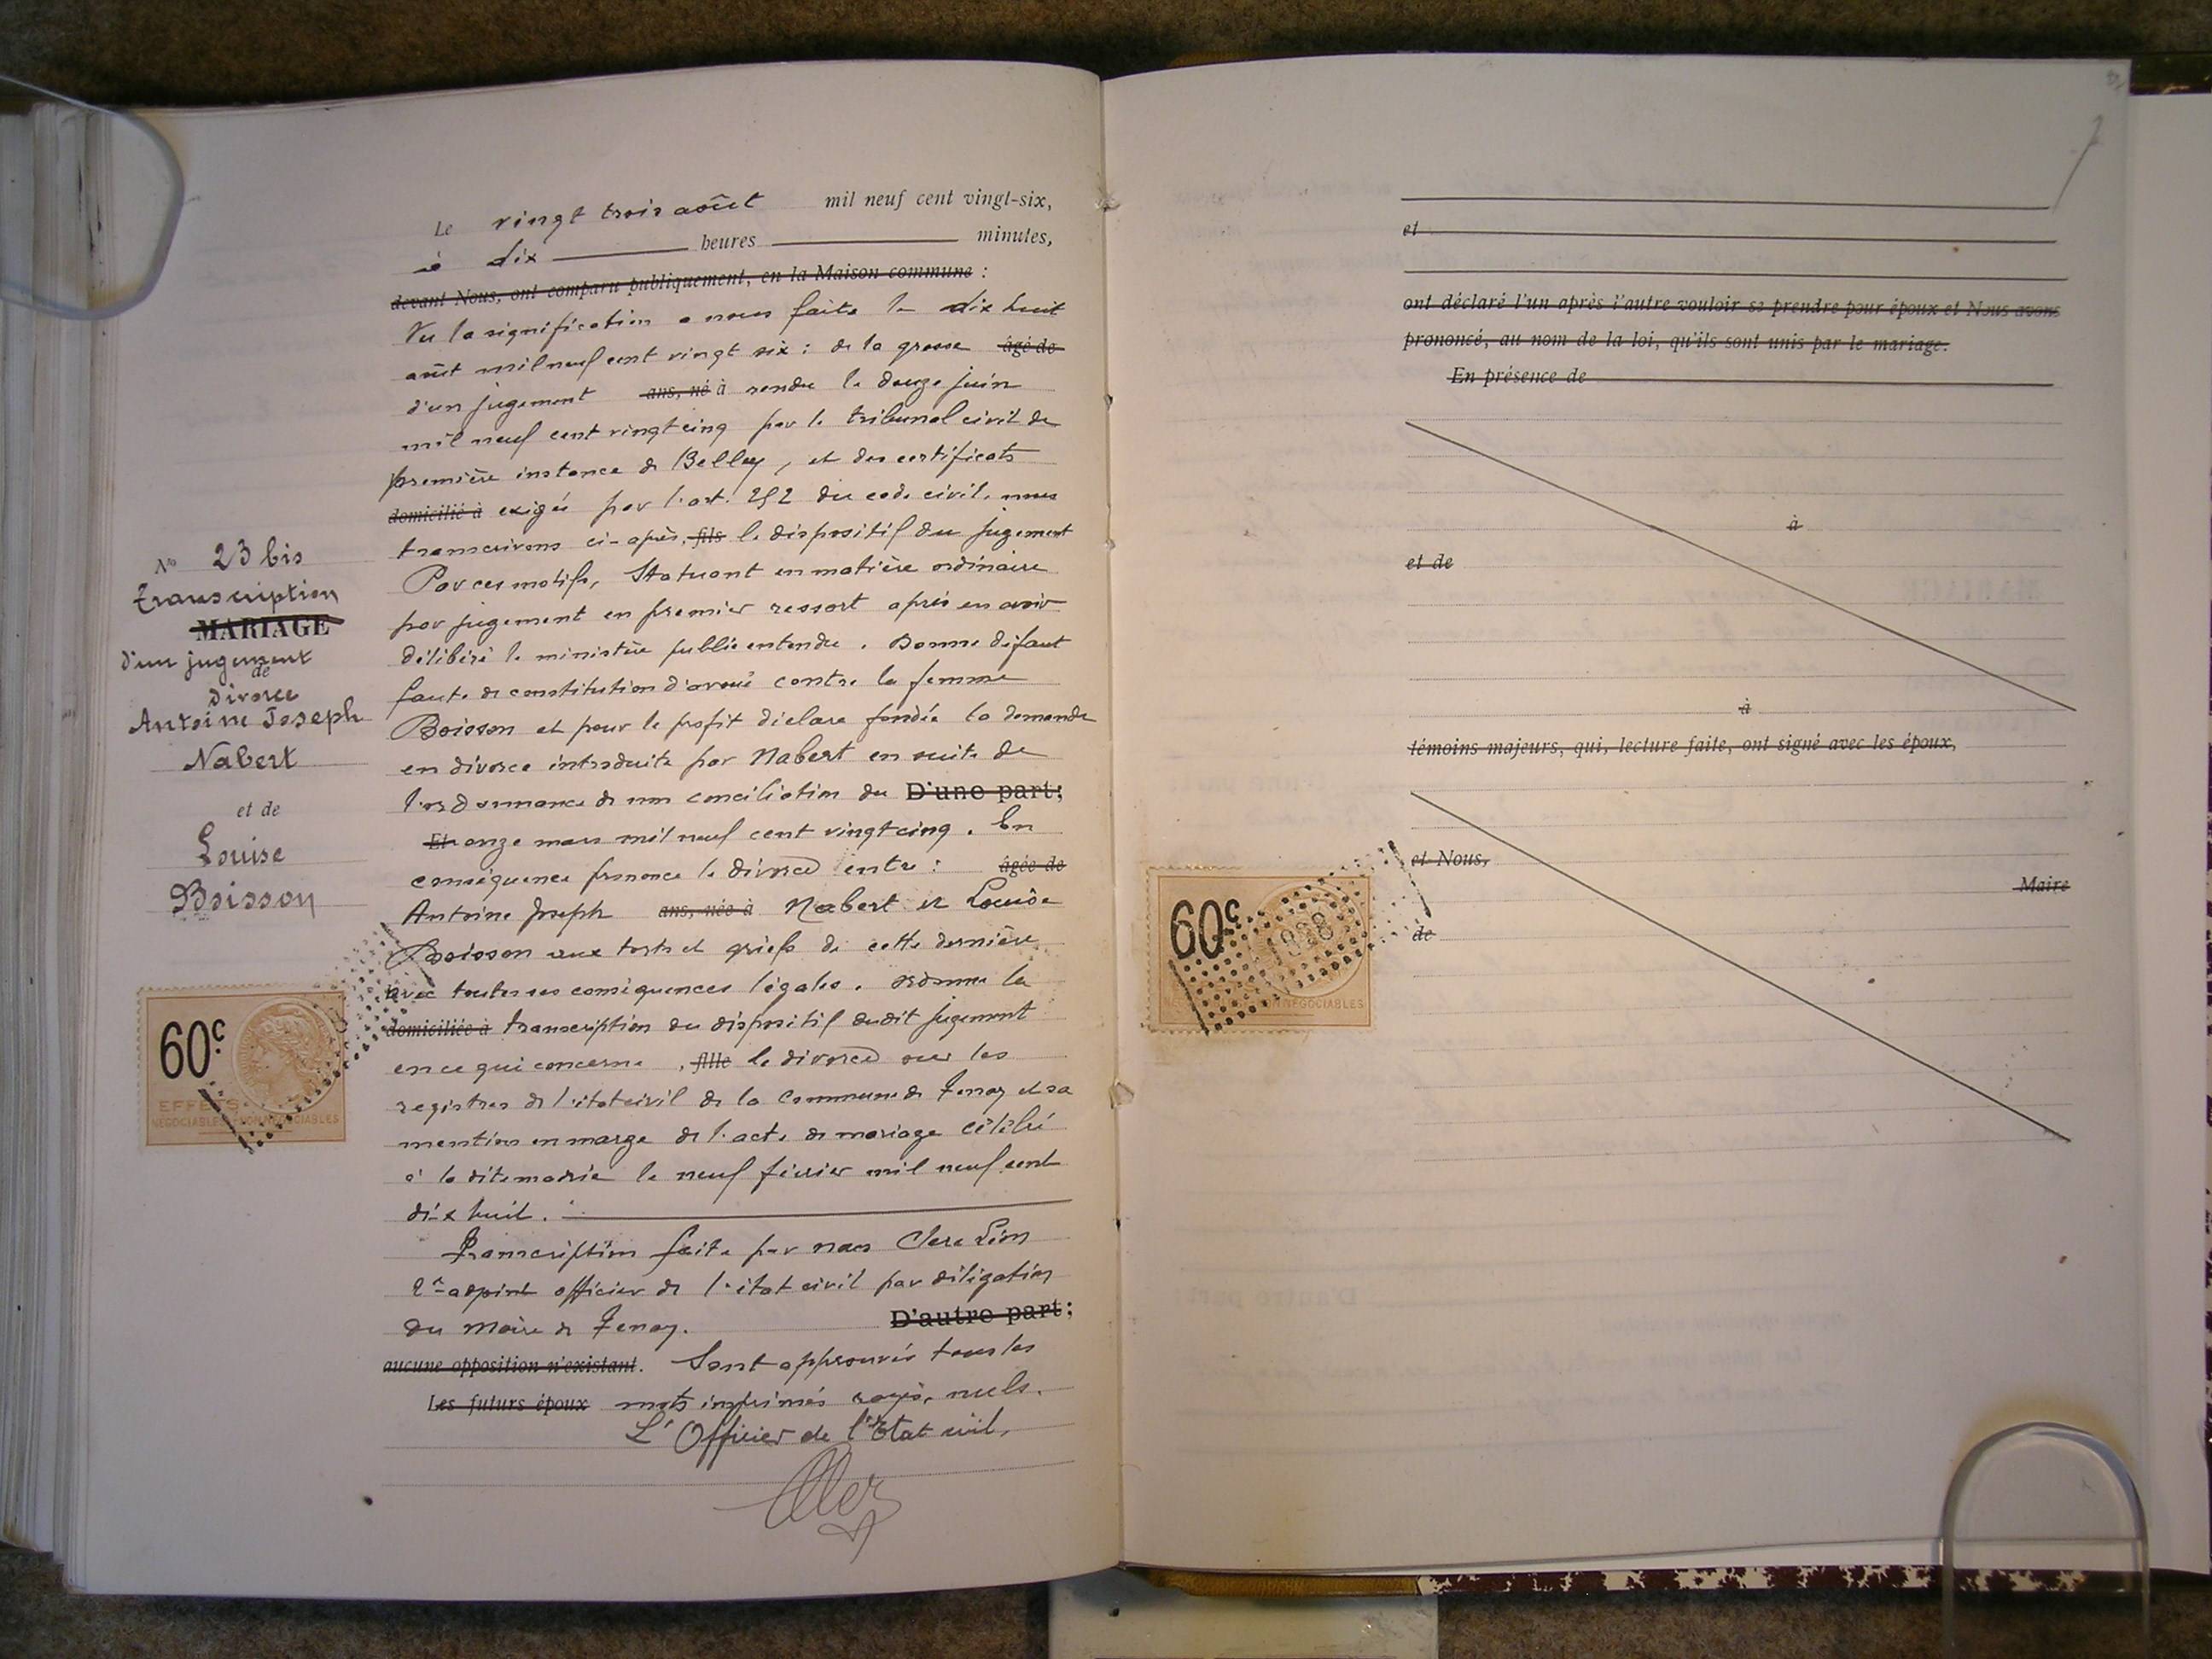 Le vingt trois août mil neuf cent vingt-six,
à dix heures minutes,
devant Nous, ont comparu publiquement, en la Maison commune :
Vu la signification a nous faite le dix huit
août mil neuf cent vingt six : de la grosse âgé de
d'un jugement ans, né à rendu le douze juin
mil neuf cent vingt cinq par le tribunal civil de
première instance de Belley, et des certificats
domicilié à exigés par l'art. 252 du code civil, nous
transcrivons ci-après, fils le dispositif du jugement
Par ces motifs, Statuant en matière ordinaire
par jugement en premier ressort après en avoir
délibéré le ministère public entendu. Donne défaut
faute de constitution d'avoué contre la femme
Boisson et pour le profit déclare fondée la demande
en divorce introduite par Nabert en suite de
l'ordonnance de non conciliation du D'une part;
Et onze mars mil neuf cent vingt cinq. En
conséquence prononce le divorce entre : âgée de
Antoine Joseph ans, née à Nabert et Louise
Boisson aux torts et griefs de cette dernière
avec toutes ses conséquences légales. Ordonne la
domiciliée à transcription du dispositif dudit jugement
en ce qui concerne , fille le divorce sur les
registres de l'état civil de la Commune de Tenay et sa
mention en marge de l'acte de mariage célébré
à la dite mairie le neuf février mil neuf cent
dix huit.
Transcription faite par nous Clerc Léon
2e adjoint officier de l'état civil par délégation
du Maire de Tenay. D'autre part;
aucune opposition n'existant. Sont approuvés tous les
Les futurs époux mots imprimés rayés, nuls.
L'Officier de l'Etat civil,
No 23 bis
Transcription
MARIAGE
d'un jugement
de
Divorce
Antoine Joseph
Nabert
et de
Louise
Boisson
60c
EFFETS
NÉGOCIABLES NON NÉGOCIABLES
et
ont déclaré l'un après l'autre vouloir se prendre pour époux et Nous avons
prononcé, au nom de la loi, qu'ils sont unis par le mariage.
En présence de
à
et de
à
témoins majeurs, qui, lecture faite, ont signé avec les époux,
et Nous,
Maire
de
60c
NON NÉGOCIABLES